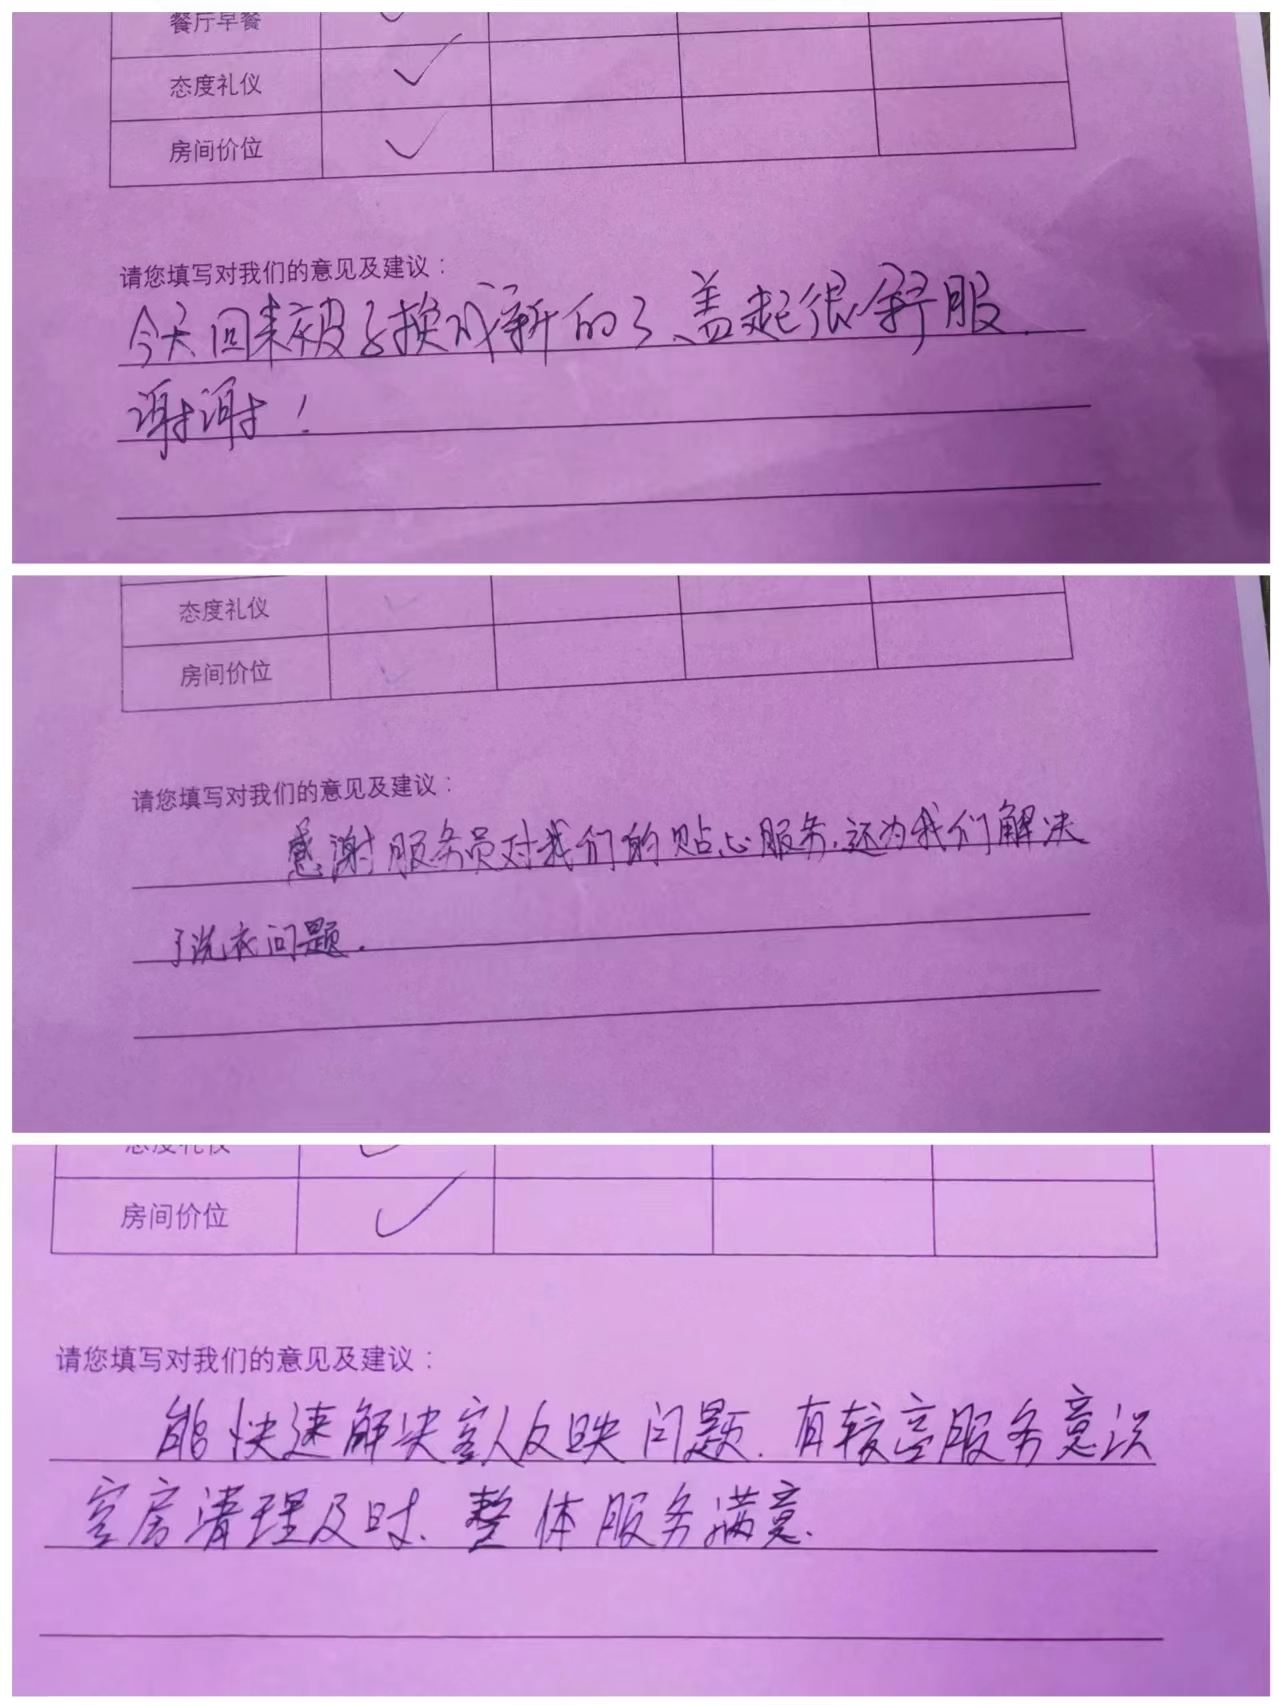 餐厅早餐
态度礼仪
房间价位
请您填写对我们的意见及建议：
今天回来被子换成新的了、盖起很舒服.
谢谢！
态度礼仪
房间价位
请您填写对我们的意见及建议：
感谢服务员对我们的贴心服务.还为我们解决
了洗衣问题.
态度礼仪
房间价位
请您填写对我们的意见及建议：
能快速解决客人反映问题.有较高服务意识
客房清理及时、整体服务满意.